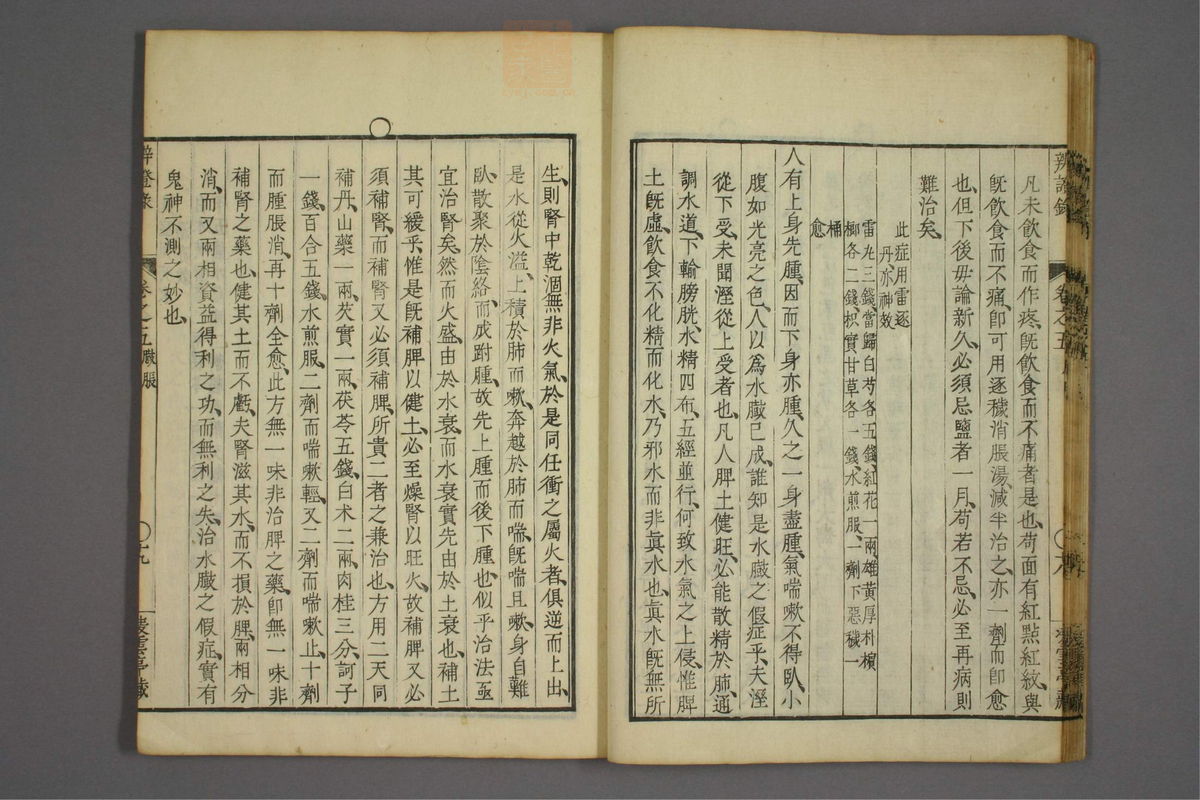 凡未飲食而作疼、既飲食而不痛者是也、苟面有紅點紅紋、與
既飲食而不痛、卽可用逐穢消脹湯、減半治之、亦一劑而卽愈
也、但下後毋論新久、必須忌鹽者一月、苟若不忌、必至再病、則
難治矣、
此症用雷逐
丹亦神效
雷丸三錢、當歸白芍各五錢、紅花一兩、雄黃厚朴檳
榔各二錢、枳實甘草各一錢、水煎服、一劑下惡穢一
桶
愈
人有上身先腫、因而下身亦腫、久之一身盡腫、氣喘嗽不得臥、小
腹如光亮之色、人以爲水臌已成、誰知是水臌之假症乎、夫溼
從下受、未聞溼從上受者也、凡人脾土健旺、必能散精於肺、通
調水道、下輸膀胱、水精四布、五經並行、何致水氣之上侵、惟脾
土旣虛、飲食不化精而化水、乃邪水而非眞水也、眞水旣無所
辨證錄
卷之五
生、則腎中乾涸、無非火氣、於是同任衝之屬火者、俱逆而上出、
是水從火溢、上積於肺而嗽、奔越於肺而喘、旣喘且嗽、身自難
臥、散聚於陰絡而成跗腫、故先上腫而後下腫也、似乎治法亟
宜治腎矣、然而火盛、由於水衰、而水衰實先由於土衰也、補土
其可緩乎、惟是旣補脾以健土、必至燥腎以旺火、故補脾又必
須補腎、而補腎又必須補脾、所貴二者之兼治也、方用二天同
補丹、山藥一兩、芡實一兩、茯苓五錢、白朮二兩、肉桂三分、訶子
一錢、百合五錢、水煎服、二劑而喘嗽輕、又二劑而喘嗽止、十劑
而腫脹消、再十劑全愈、此方無一味非治脾之藥、卽無一味非
補腎之藥也、健其土而不虧夫腎、滋其水、而不損於脾、兩相分
消、而又兩相資益、得利之功、而無利之失、治水臌之假症、實有
鬼神不測之妙也、
辨證錄
卷之五臌脹
十九